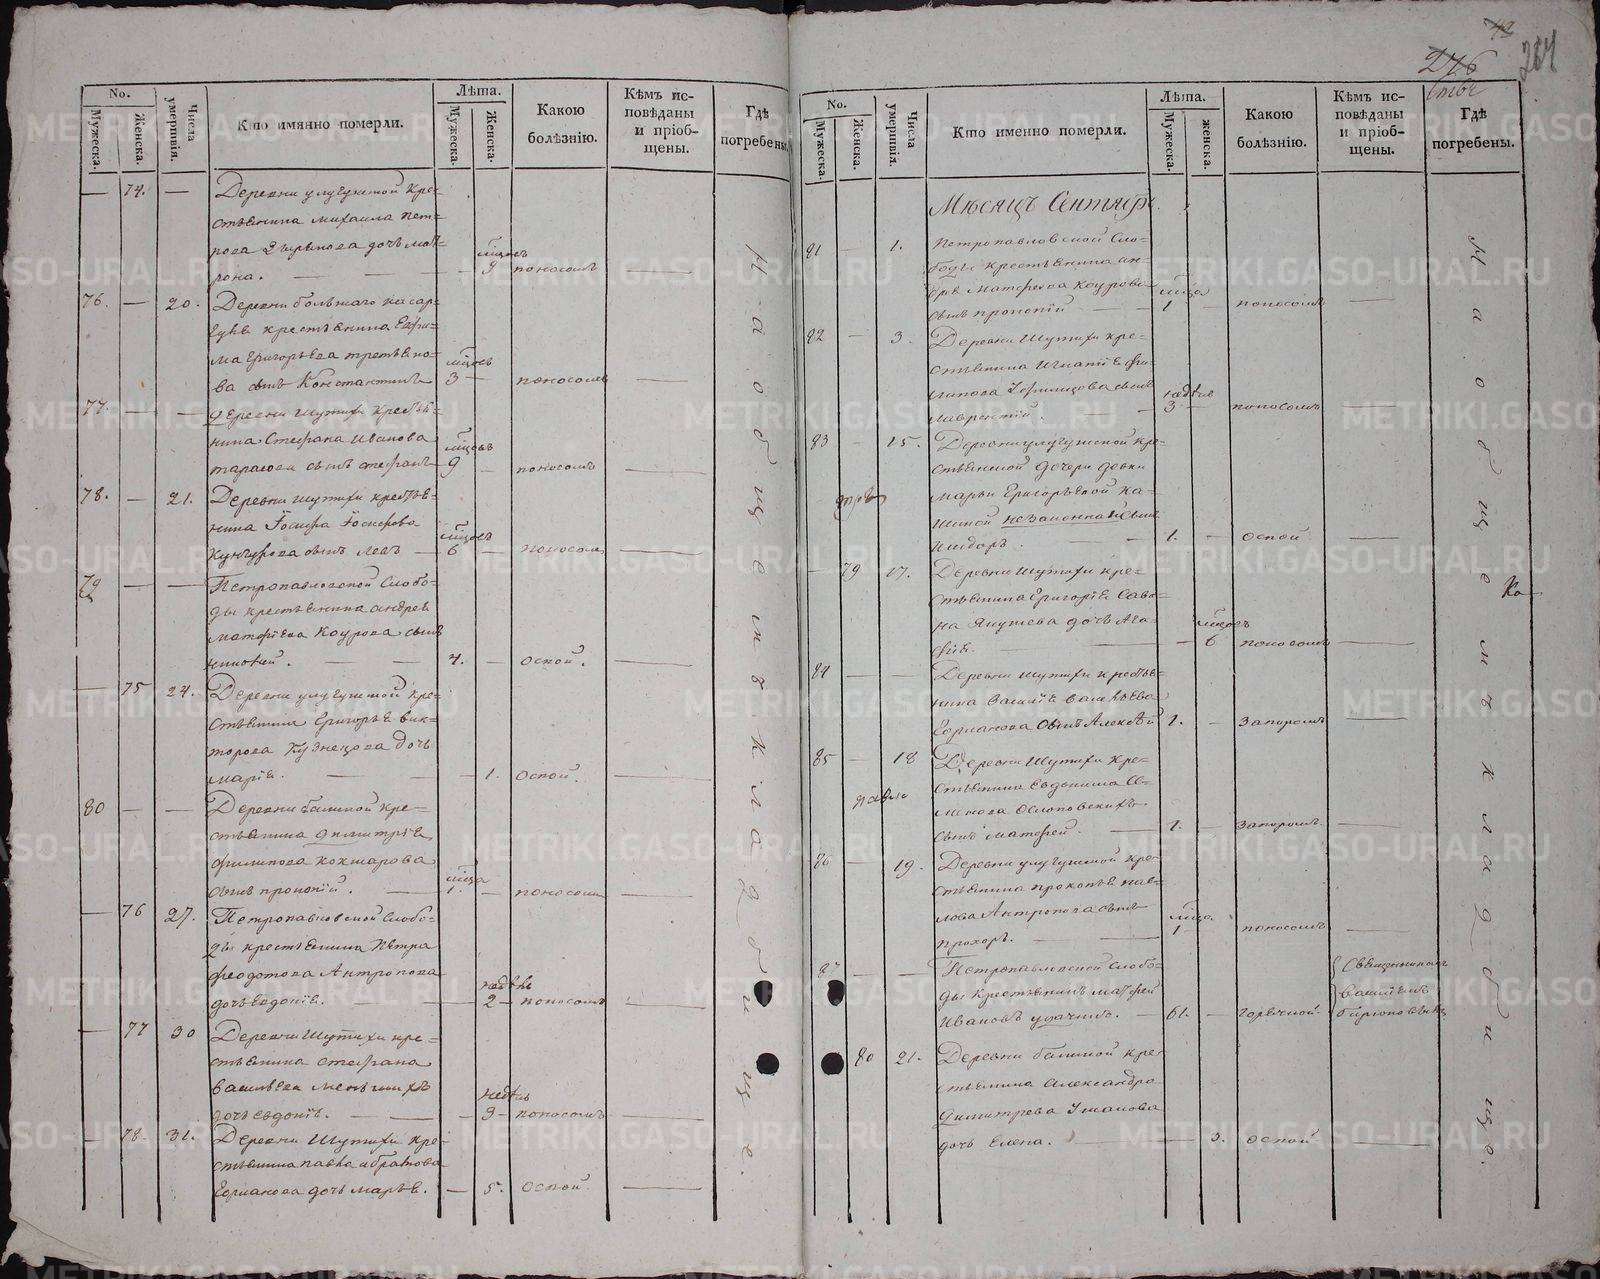 43
276
264
No.
Мужеска.
Женска.
Числа умершвія.
Кто имянно померли.
Лѣта.
Мужеска.
Женска.
Какою болѣзнію.
Кѣмъ ис-
повѣданы
и пріоб-
щены.
Гдѣ
погребены.
74.
Деревни улугушской кре-
стьянина михаила пет-
рова дочь мат-
рона.
9 поносомъ
76. — 20.
Деревни большаго касар-
гуля крестьянина Ефи-
ма григорьева третьяко-
ва сынъ Константинъ
3 — поносомъ
77. — —
деревни шутихи крестья-
нина Стефана Иванова
тарасова сынъ стефанъ
9 — поносомъ
78. — 21.
Деревни шутихи крестья-
нина Іосифа Іосифова
Кунгурова сынъ левъ
6 — поносомъ
79 — —
Петропавловской слобо-
ды крестьянина андрея
матфѣева Коурова сынъ
— 4. — оспой.
— 75 24.
Деревни улугушской кре-
стьянина григорья вик-
торова Кузнецова дочь
марія. — 1. оспой.
80 — —
Деревни балиной кре-
стьянина димитрія
филипова кокшарова
сынъ прокопій. 1. — поносомъ
— 76 27.
Петропавловской слобо-
ды крестьянина Петра
феодотова Антропова
дочь евдокія.
2 — поносомъ
— 77 30
Деревни Шутихи кре-
стьянина стефана
васильева меньшихъ
дочь евдокія.
3 — поносомъ
— 78. 31.
Деревни Шутихи кре-
стьянина павла
дочь марья. — 5. оспой.
На общемъ кладбище.
No.
Мужеска.
Женска.
Числа умершвія.
Кто именно померли.
Лѣта.
Мужеска.
женска.
Какою болѣзнію.
Кѣмъ ис-
повѣданы
и пріоб-
щены.
Гдѣ
погребены.
Мѣсяцъ Сентябрь.
81 — 1.
Петропавловской Сло-
боды крестьянина ан-
дрея Матфеева Коурова
сынъ прокопій 1 — поносомъ
82 — 3.
Деревни Шутихи кре-
стьянина Игнатія фи-
липова сынъ
лаврентій.
3 — поносомъ
83 — 15.
Деревни улугушской кре-
стьянской дочери девки
марьи Григорьевой Ка-
шиной незаконной сынъ
Исидоръ. 1. — оспой
— 79 17.
Деревни шутихи кре-
стьянина григорія Сав-
ина Якушева дочь Ага-
фія. — 6 поносомъ
84 — —
Деревни шутихи крестья-
нина Василія васильева
сынъ Алексѣй 1. — запоромъ
85 — 18
Деревни Шутихи кре-
стьянина Евдокима
Осиповскихъ
сынъ матфей. 1. — запоромъ.
86 — 19.
Деревни улугушской кре-
стьянина прокопья пав-
лова Антропова сынъ
прохоръ. 1 поносомъ
87 — —
Петропавловской слобо-
ды крестьянинъ матфей
Ивановъ удачинъ. — 61. — горячкой.
Священникомъ
василіемъ
80 21.
Деревни балиной кре-
стьянина Александра
димитрева Ушакова
дочь Елена. — 3. оспой
На общемъ кладбище.
Ко
METRIKI.GASO-URAL.RU